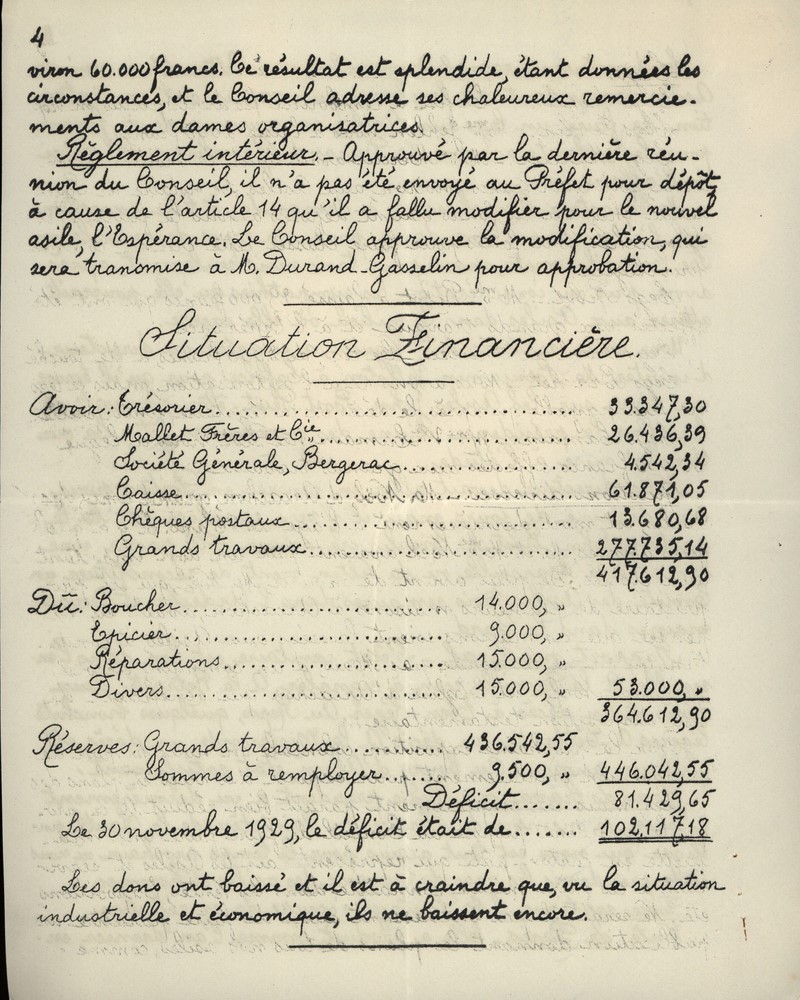 4
viron 60.000 francs. Ce résultat est splendide, étant données les
circonstances, et le Conseil adresse ses chaleureux remercie-
ments aux dames organisatrices.
Règlement intérieur. - Approuvé par la dernière réu-
nion du Conseil, il n'a pas été envoyé au Préfet pour dépôt,
à cause de l'article 14 qu'il a fallu modifier pour le nouvel
asile, l'Espérance. Le Conseil approuve la modification, qui
sera transmise à M. Durand-Gasselin pour approbation.
Situation Financière.
Avoir: Trésorier........ 33.347,30
Mallet Frères et Cie........ 26.436,39
Société Générale, Bergerac........ 4.542,34
Caisse........ 61.871,05
Chèques postaux........ 13.680,68
Grands travaux........ 277.735,14
417.612,90
Dû: Boucher........ 14.000, "
Epicier........ 9.000, "
Réparations........ 15.000, "
Divers........ 15.000, " 53.000, "
364.612,90
Réserves: Grands travaux........ 436.542,55
Sommes à remployer........ 9.500, " 446.042,55
Déficit....... 81.429,65
Le 30 novembre 1929, le déficit était de....... 102.117,18
Les dons ont baissé et il est à craindre que, vu la situation
industrielle et économique, ils ne baissent encore.